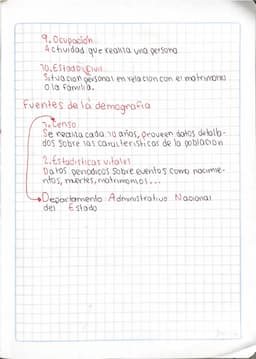 9. Ocupación
Actividad que realiza una persona
10. Estado Civil
Situación personal en relacion con el matrimonio
o la familia.
Fuentes de la demografia
1. Censo
Se realiza cada 10 años, proveen datos detalla-
dos sobre las caracteristicas de la población
2. Estadisticas vitales
Datos periodicos sobre eventos como nacimie-
ntos, muertes, matrimonios...
Departamento Administrativo Nacional
del Estado